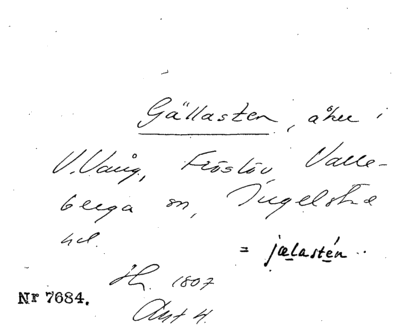 Gällasten, åker i
V. Vång, Fröslöv, Valle-
berga sn, Ingelstad
hd.
= jælastén
1807
Akt 4.
Nr 7684.